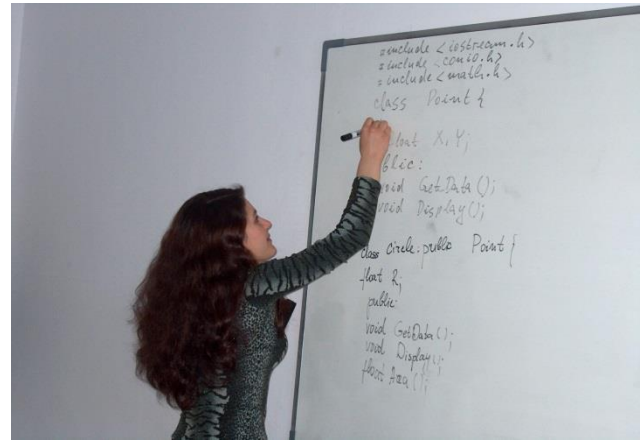 #include <iostream.h>
#include <conio.h>
#include <math.h>
class Point {
X, Y;
void GetData();
void Display();
class Circle: public Point {
float R;
public:
void GetData();
void Display();
float Area();